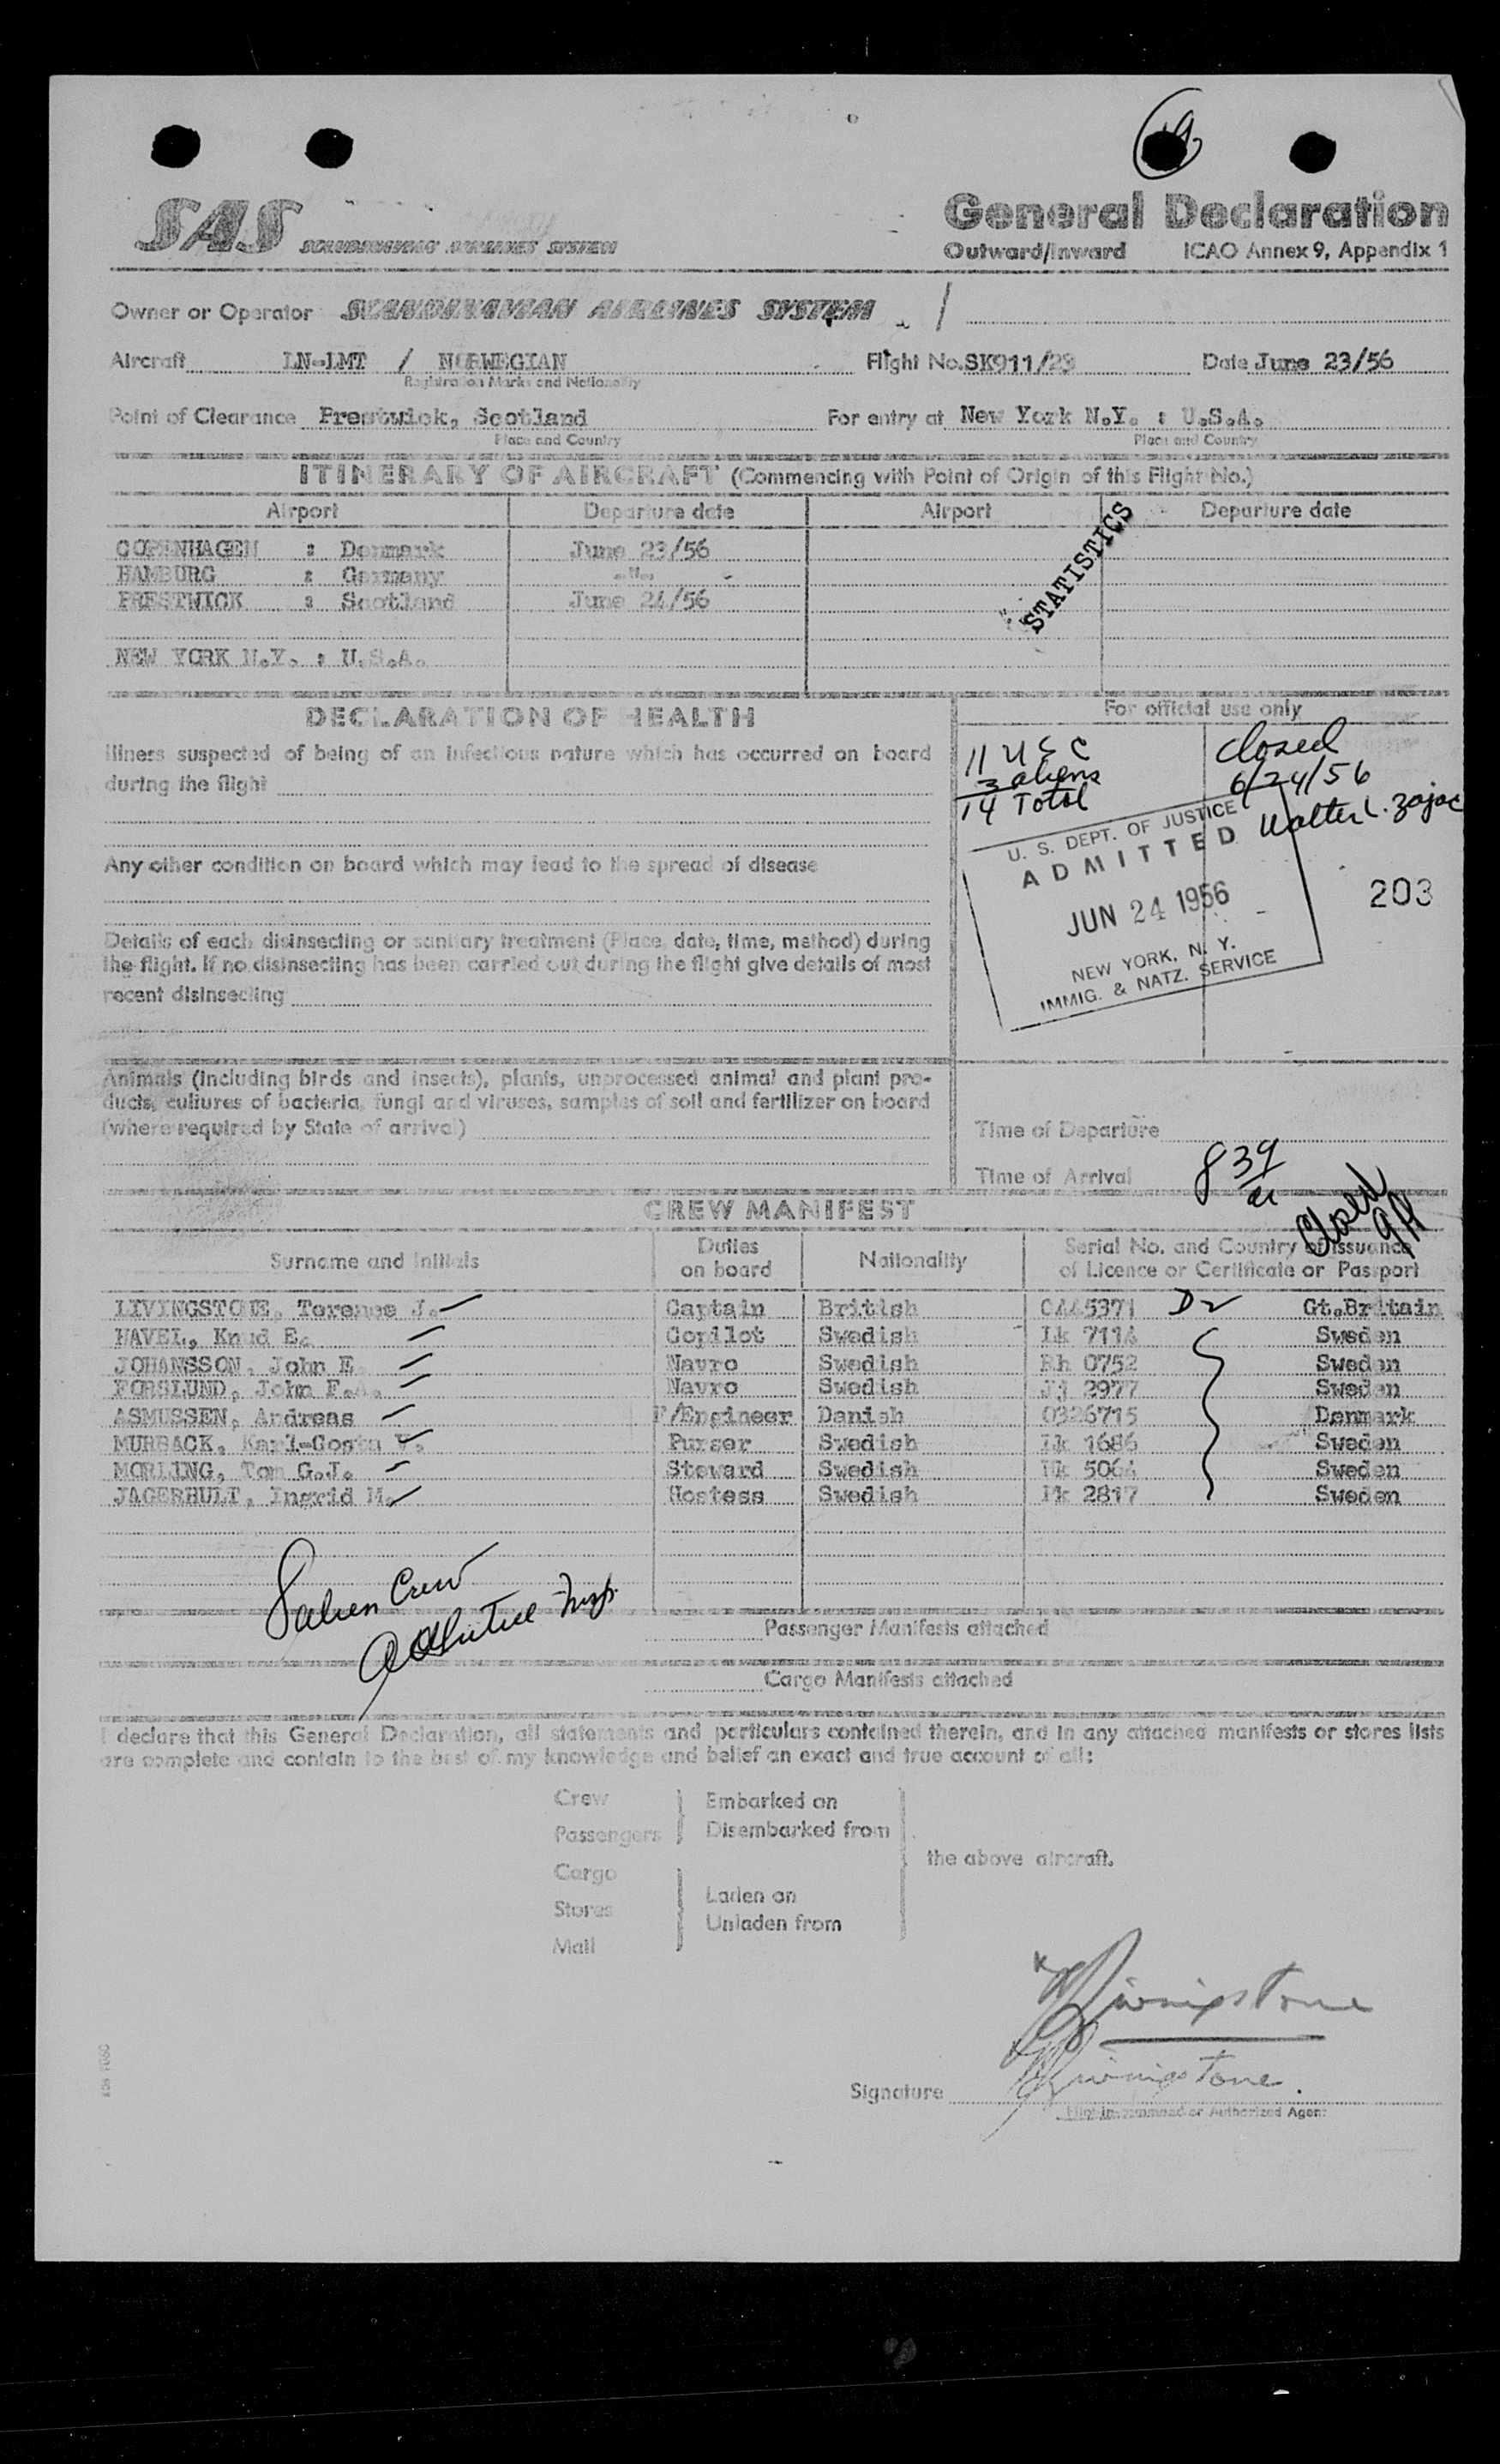 SAS SCANDINAVIAN AIRLINES SYSTEM
General Declaration
Outward/Inward ICAO Annex 9, Appendix 1
Owner or Operator SCANDINAVIAN AIRLINES SYSTEM /
Aircraft LN-LMT / NORWEGIAN Flight No. SK911/23 Date June 23/56
Registration Marks and Nationality
Point of Clearance Prestwick, Scotland For entry at New York N.Y. : U.S.A.
Place and Country Place and Country
ITINERARY OF AIRCRAFT (Commencing with Point of Origin of this Flight No.)
Airport Departure date Airport Departure date
COPENHAGEN : Denmark June 23/56
HAMBURG : Germany -"-
PRESTWICK : Scotland June 24/56
NEW YORK N.Y. : U.S.A.
STATISTICS
DECLARATION OF HEALTH
Illness suspected of being of an infectious nature which has occurred on board
during the flight
Any other condition on board which may lead to the spread of disease
Details of each disinsecting or sanitary treatment (Place, date, time, method) during
the flight. If no disinsecting has been carried out during the flight give details of most
recent disinsecting
Animals (including birds and insects), plants, unprocessed animal and plant pro-
ducts, cultures of bacteria, fungi and viruses, samples of soil and fertilizer on board
(where required by State of arrival)
For official use only
11 USC
3 aliens
14 Total
closed
6/24/56
Walter L. Zajac
U. S. DEPT. OF JUSTICE
ADMITTED
JUN 24 1956
NEW YORK, N. Y.
IMMIG. & NATZ. SERVICE
203
Time of Departure
Time of Arrival 839
CREW MANIFEST
Surname and Initials Duties on board Nationality Serial No. and Country of Issuance of Licence or Certificate or Passport
LIVINGSTONE, Terence J. Captain British CA45371 D2 Gt.Britain
HAVEL, Knud E. Copilot Swedish Lk 7114 Sweden
JOHANSSON, John E. Navro Swedish Rh 0752 Sweden
FORSLUND, John F.A. Navro Swedish Jj 2977 Sweden
ASMUSSEN, Andreas F/Engineer Danish 0326715 Denmark
MURBACK, Karl-Gosta V. Purser Swedish Ik 1686 Sweden
MORLING, Tom G.J. Steward Swedish Hk 5064 Sweden
JAGERHULT, Ingrid M. Hostess Swedish Pk 2817 Sweden
8 alien Crew
Passenger Manifests attached
Cargo Manifests attached
I declare that this General Declaration, all statements and particulars contained therein, and in any attached manifests or stores lists
are complete and contain to the best of my knowledge and belief an exact and true account of all:
Crew
Passengers
Cargo
Stores
Mail
Embarked on
Disembarked from
Laden on
Unladen from
the above aircraft.
Livingstone
Signature Livingstone.
Pilot-in-command or Authorized Agent